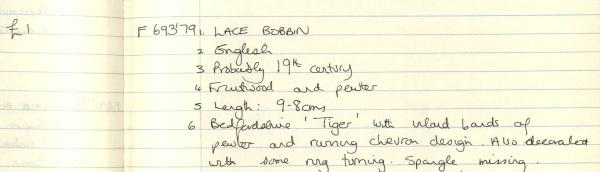 £1 F693'79 1. LACE BOBBIN
2 English
3 Probably 19th century
4 Fruitwood and pewter
5 Length: 9-8cms
6 Bedfordshire 'Tiger' with inlaid bands of
pewter and running chevron design. Also decorated
with some ring turning. Spangle missing.